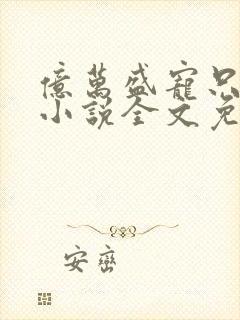 億萬盛寵只
小說全文免
安巒